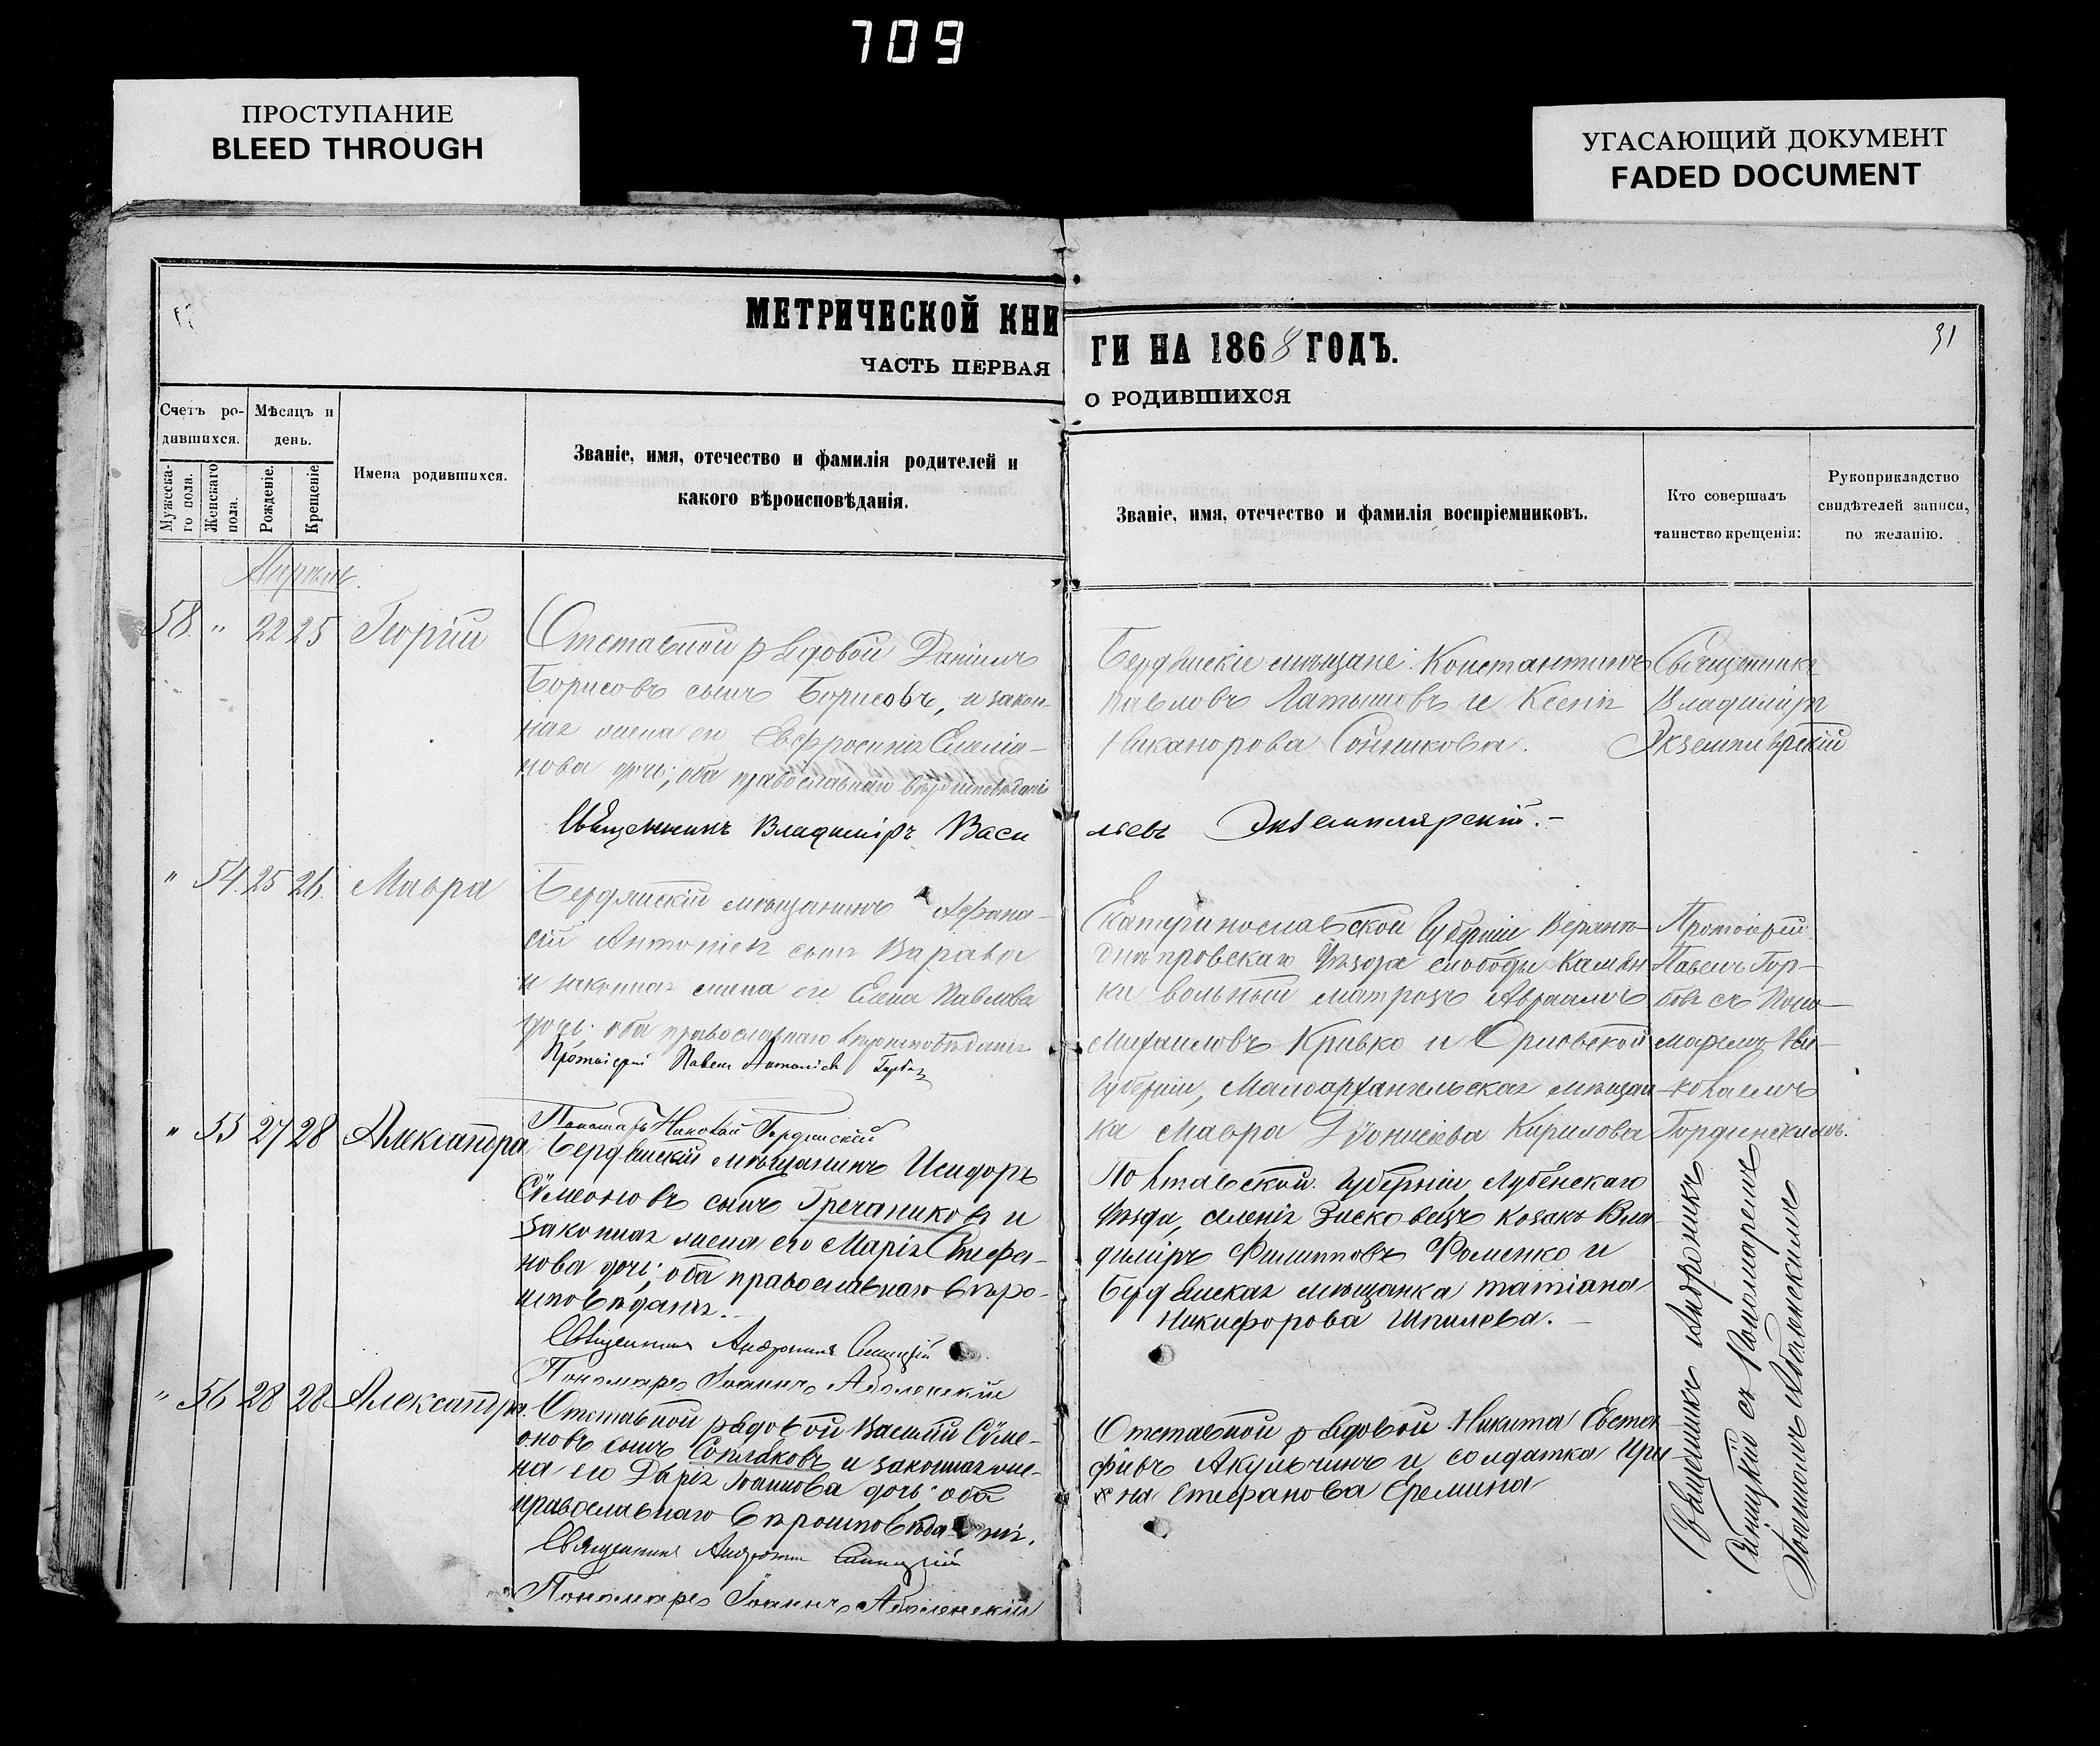 709
ПРОСТУПАНИЕ
BLEED THROUGH
УГАСАЮЩИЙ ДОКУМЕНТ
FADED DOCUMENT
МЕТРИЧЕСКОЙ КНИ
ГИ НА 1868 ГОДЪ.
31
ЧАСТЬ ПЕРВАЯ
О РОДИВШИХСЯ
Счетъ ро-
дившихся.
Мѣсяцъ и
день.
Мужеска-
го пола.
Женскаго
пола.
Рожденіе.
Крещеніе.
Имена родившихся.
Званіе, имя, отечество и фамилія родителей и
какого вѣроисповѣданія.
Званіе, имя, отечество и фамилія воспріемниковъ.
Кто совершалъ
таинство крещенія:
Рукоприкладство
свидѣтелей записи,
по желанію.
Апрѣль.
58. " 22 25 Георгій
Отставной рядовой Даніилъ
Борисовъ сынъ Борисовъ, и закон-
ная жена его Евфросинія Емеліа-
нова дочь; оба православнаго вѣроисповѣданія
Бердянскіе мѣщане: Константинъ
Павловъ Латышовъ и Ксенія
Никанорова Сонникова.
Священникъ
Владиміръ
Экземплярскій
Священникъ Владиміръ Васи
льевъ Экземплярскій.-
" 54. 25 26. Мавра
Бердянскій мѣщанинъ Афана-
сій Антоніевъ сынъ Варава
и законная жена его Елена Павлова
дочь; оба православнаго вѣроисповѣданія
Протоіерей Павелъ
Пономарь Николай Гординскій
Екатеринославской Губерніи Верхне-
днѣпровскаго Уѣзда слободы Камен
ки вольный матрозъ Авраамъ
Михаиловъ Кривко и Орловской
Губерніи, Малоархангельская мѣщан-
ка Мавра Діонисіева Кирилова
Протоіерей
Павелъ Гор-
бовъ съ Поно-
маремъ Ни-
колаемъ
Гординскимъ.
" 55 27 28 Александра
Бердянскій мѣщанинъ Исидоръ
Сѵмеоновъ сынъ Гречаниковъ и
законная жена его Марія Стефа-
нова дочь; оба православнаго вѣро-
исповѣданія.
Священникъ Андроникъ Синицкій
Пономарь Іоаннъ Аболенскій
Полтавской Губерніи Лубенскаго
Уѣзда, селенія козакъ Вла-
диміръ Филипповъ Фоменко и
Бердянская мѣщанка Татіана
Никифорова Шпилева.
" 56 28 28 Александра.
Отставной рядовой Василій Сѵме-
оновъ сынъ Сопляковъ и законная же-
на его Дарія Іоаннова дочь; оба
православнаго вѣроисповѣданія.
Священникъ Андроникъ Синицкій
Пономарь Іоаннъ Аболенскій
Отставной рядовой Никита Евста
фіевъ Акульчинъ и солдатка Ири-
на Стефанова Еремина
Священникъ Андроникъ
Синицкій съ Пономаремъ
Іоанномъ Аболенскимъ